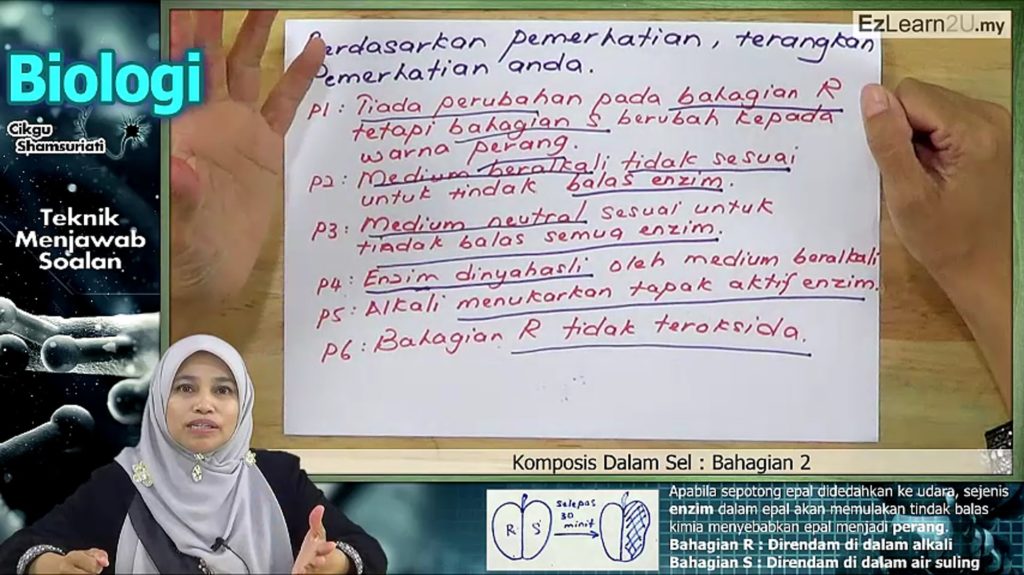 EzLearn2U.my
Biologi
Cikgu
Shamsuriati
Teknik
Menjawab
Soalan
Berdasarkan pemerhatian, terangkan
Pemerhatian anda.
P1: Tiada perubahan pada bahagian R
tetapi bahagian S berubah kepada
warna perang.
P2: Medium beralkali tidak sesuai
untuk tindak balas enzim.
P3: Medium neutral sesuai untuk
tindak balas semua enzim.
P4: Enzim dinyahasli oleh medium beralkali
P5: Alkali menukarkan tapak aktif enzim.
P6: Bahagian R tidak teroksida.
Komposis Dalam Sel : Bahagian 2
R S
selepas
30
minit
Apabila sepotong epal didedahkan ke udara, sejenis
enzim dalam epal akan memulakan tindak balas
kimia menyebabkan epal menjadi perang.
Bahagian R : Direndam di dalam alkali
Bahagian S : Direndam di dalam air suling